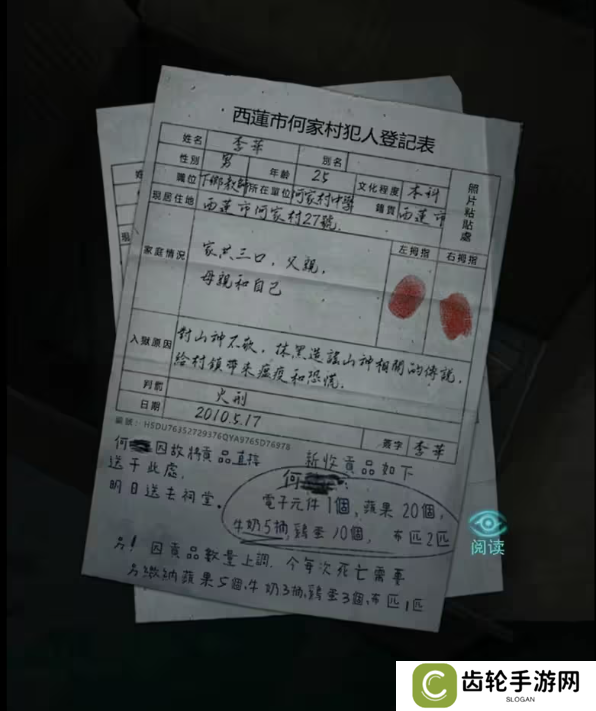 西蓮市何家村犯人登記表
姓名 李華 別名
性別 男 年齡 25 文化程度 本科
職位 下鄉教師 所在單位 何家村中學 籍貫 西蓮市
現居住地 西蓮市何家村27號.
照片粘貼處
家庭情況 家共三口,父親,
母親和自己
左拇指 右拇指
入獄原因 對山神不敬,抹黑造謠山神相關的傳說,
給村鎮帶來瘟疫和恐慌.
判前 火刑
日期 2010.5.17 簽字 李華
編號:HSDU76352729376QYA9765D76978
何 因故將貢品直接
送于此處,
明日送去祠堂.
新收貢品如下
何
電子元件1個,蘋果20個,
牛奶5抽,鷄蛋10個, 布匹2匹
另!因貢品數量上調.今每次死亡需要
另繳納蘋果5個,牛奶3抽,鷄蛋3個,布匹1匹
阅读
齿轮手游网
SLOGAN